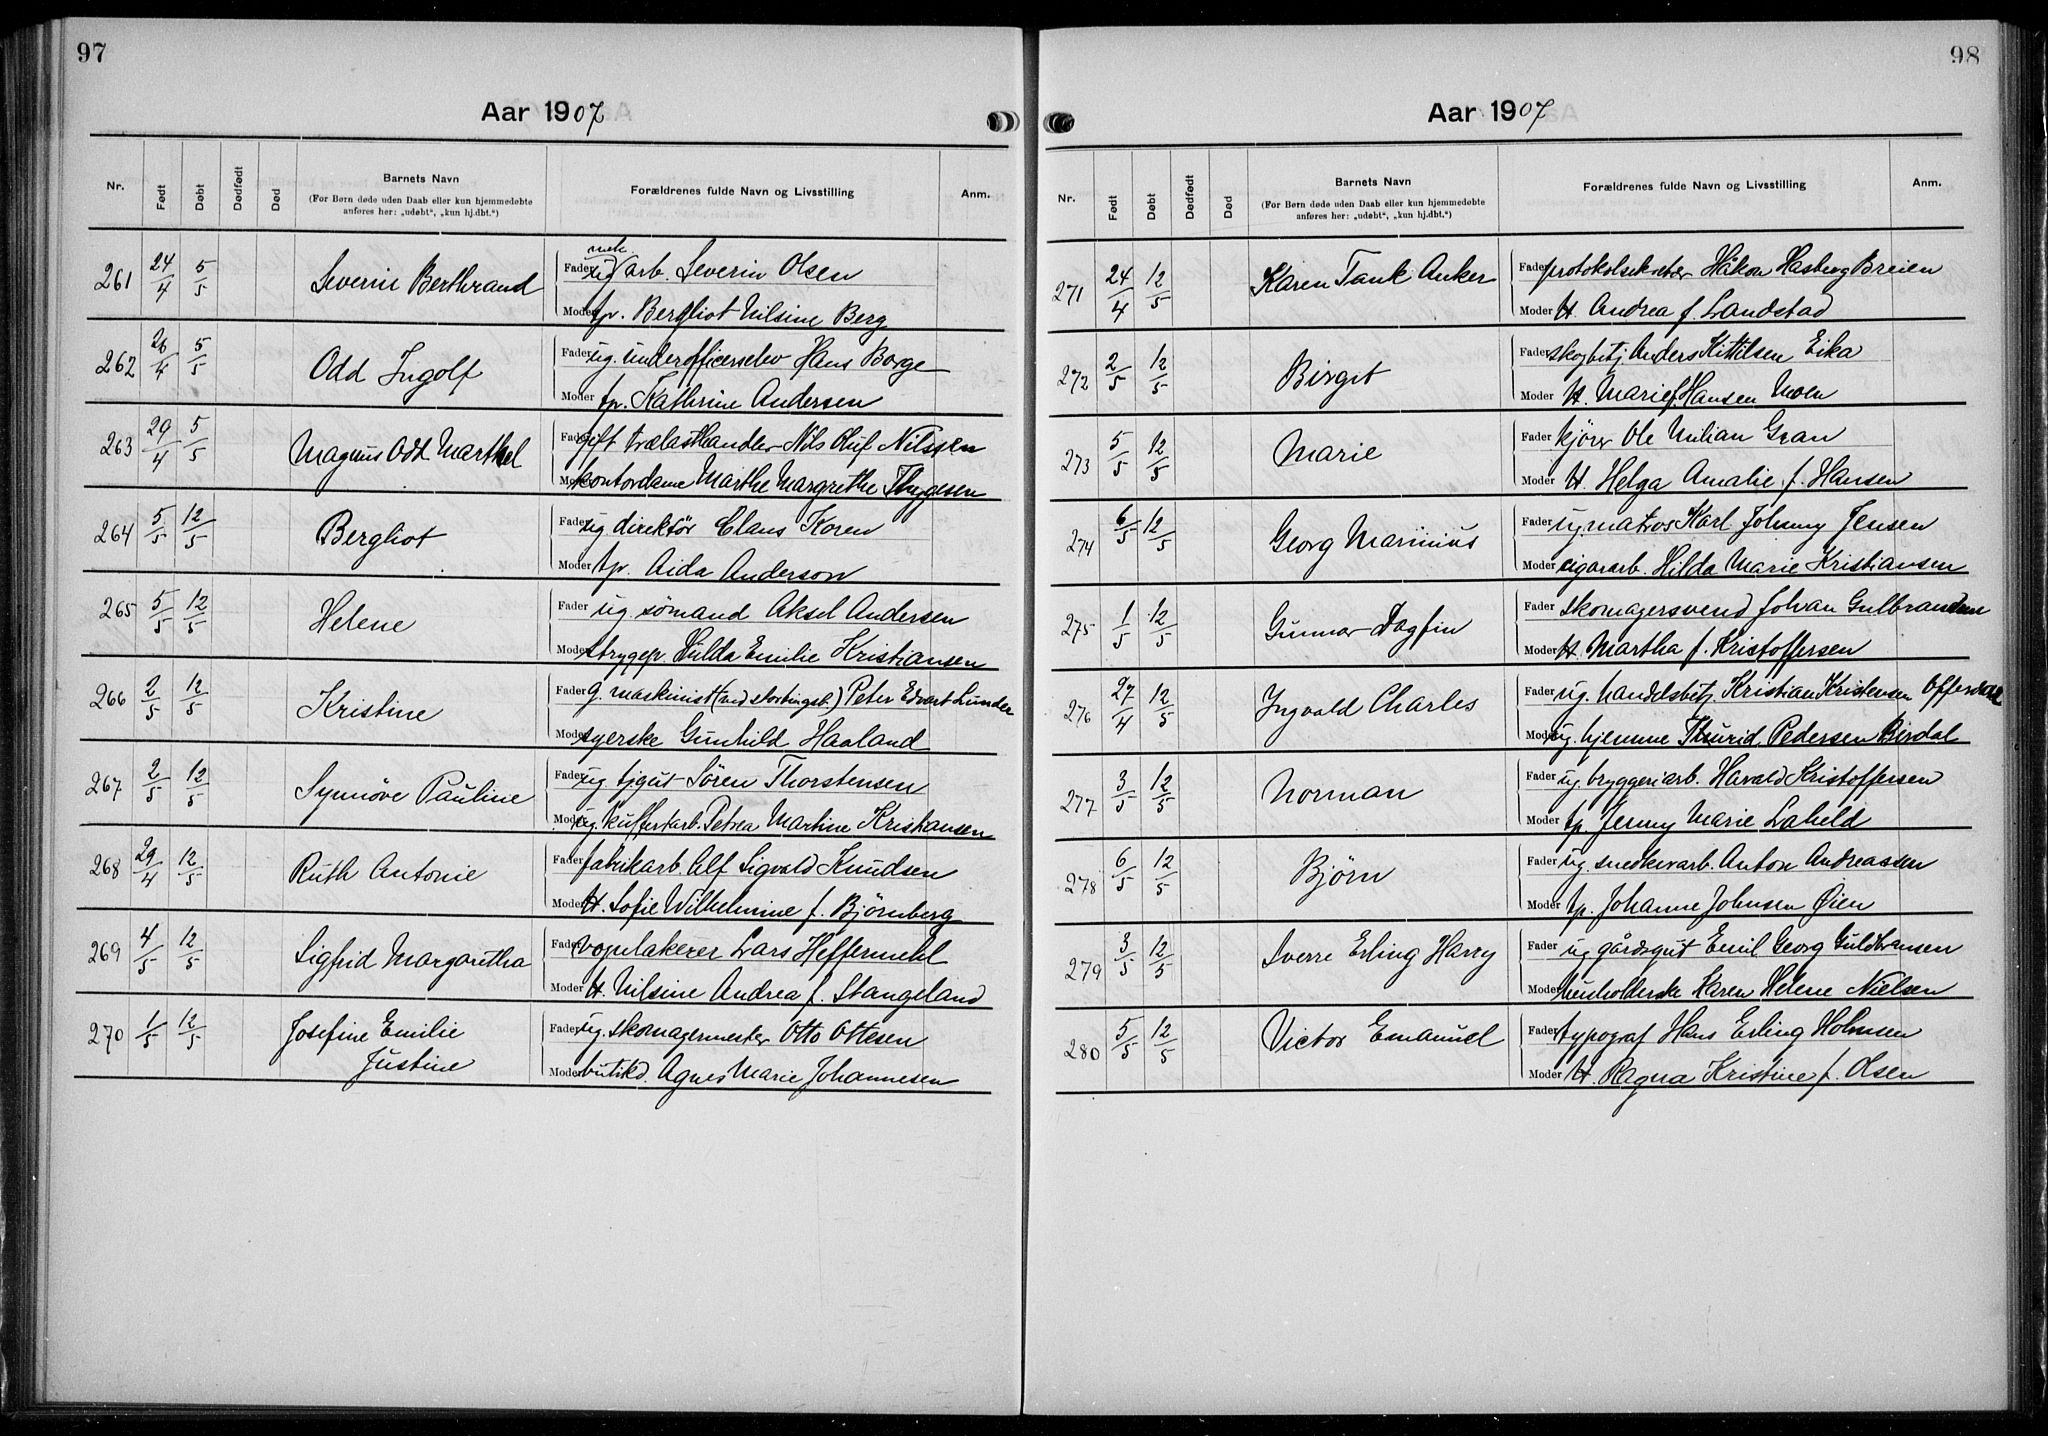 97
Aar 1907
Nr.
Født
Døbt
Dødfødt
Død
Barnets Navn
(For Børn døde uden Daab eller kun hjemmedøbte
anføres her: „udøbt“, „kun hj.dbt.“)
Forældrenes fulde Navn og Livsstilling
Anm.
261 24/4 5/5 Severin Berthrand
Fader ug. mek. arb. Severin Olsen
Moder tp. Bergliot Nilsine Berg
262 26/4 5/5 Odd Ingolf
Fader ug. underofficerselev Hans Borge
Moder tp. Kathrine Andersen
263 29/4 5/5 Magnus Odd Marthel
Fader gift trælasthandler Nils Oluf Nilssen
Moder kontordame Marthe Margrethe Thygesen
264 5/5 12/5 Bergliot
Fader ug. direktör Claus Koren
Moder tp. Aida Anderson
265 5/5 12/5 Helene
Fader ug. sömand Aksel Andersen
Moder strygep. Hulda Emilie Kristiansen
266 2/5 12/5 Kristine
Fader g. maskinist (ved stortingsb.) Peter Edvart Lunder
Moder syerske Gunhild Haaland
267 2/5 12/5 Synnöve Pauline
Fader ug. tjgut Sören Thorstensen
Moder ug. kuffertarb. Petrea Martine Kristiansen
268 29/4 12/5 Ruth Antonie
Fader fabrikarb. Alf Sigvald Knudsen
Moder H. Sofie Wilhelmine f. Björnberg
269 4/5 12/5 Sigfrid Margaretha
Fader vognlakerer Lars Heffermehl
Moder H. Nilsine Andrea f. Stangeland
270 1/5 12/5 Josefine Emilie
Justine
Fader ug. skomagermester Otto Ottesen
Moder butikd. Agnes Marie Johannesen
98
Aar 1907
Nr.
Født
Døbt
Dødfødt
Død
Barnets Navn
(For Børn døde uden Daab eller kun hjemmedøbte
anføres her: „udøbt“, „kun hj.dbt.“)
Forældrenes fulde Navn og Livsstilling
Anm.
271 24/4 12/5 Karen Tank Anker
Fader protokolsekretær Håkon Hasberg Breien
Moder H. Andrea f. Landstad
272 2/5 12/5 Birgit
Fader skogbetj. Anders Kittilsen Eika
Moder H. Marie f. Hansen Moen
273 5/5 12/5 Marie
Fader kjörer Ole Milian Gran
Moder H. Helga Amalie f. Hansen
274 6/5 12/5 Georg Marinius
Fader ug. matros Karl Johnny Jensen
Moder cigararb. Hilda Marie Kristiansen
275 1/5 12/5 Gunnar Dagfin
Fader skomagersvend Johan Gulbrandsen
Moder H. Martha f. Kristoffersen
276 27/4 12/5 Ingvald Charles
Fader ug. handelsbetj. Kristian Kristensen Offerdal
Moder ug. hjemme Thurid Pedersen Birdal
277 3/5 12/5 Norman
Fader ug. bryggeriarb. Harald Kristoffersen
Moder tp. Jenny Marie Laheld
278 6/5 12/5 Björn
Fader ug. snedkerarb. Anton Andreassen
Moder tp. Johanne Johnsen Øien
279 3/5 12/5 Sverre Erling Harry
Fader ug. gårdsgut Emil Georg Guldbransen
Moder husholderske Karen Helene Nielsen
280 5/5 12/5 Victor Emanuel
Fader typograf Hans Erling Holmsen
Moder H. Ragna Kristine f. Olsen